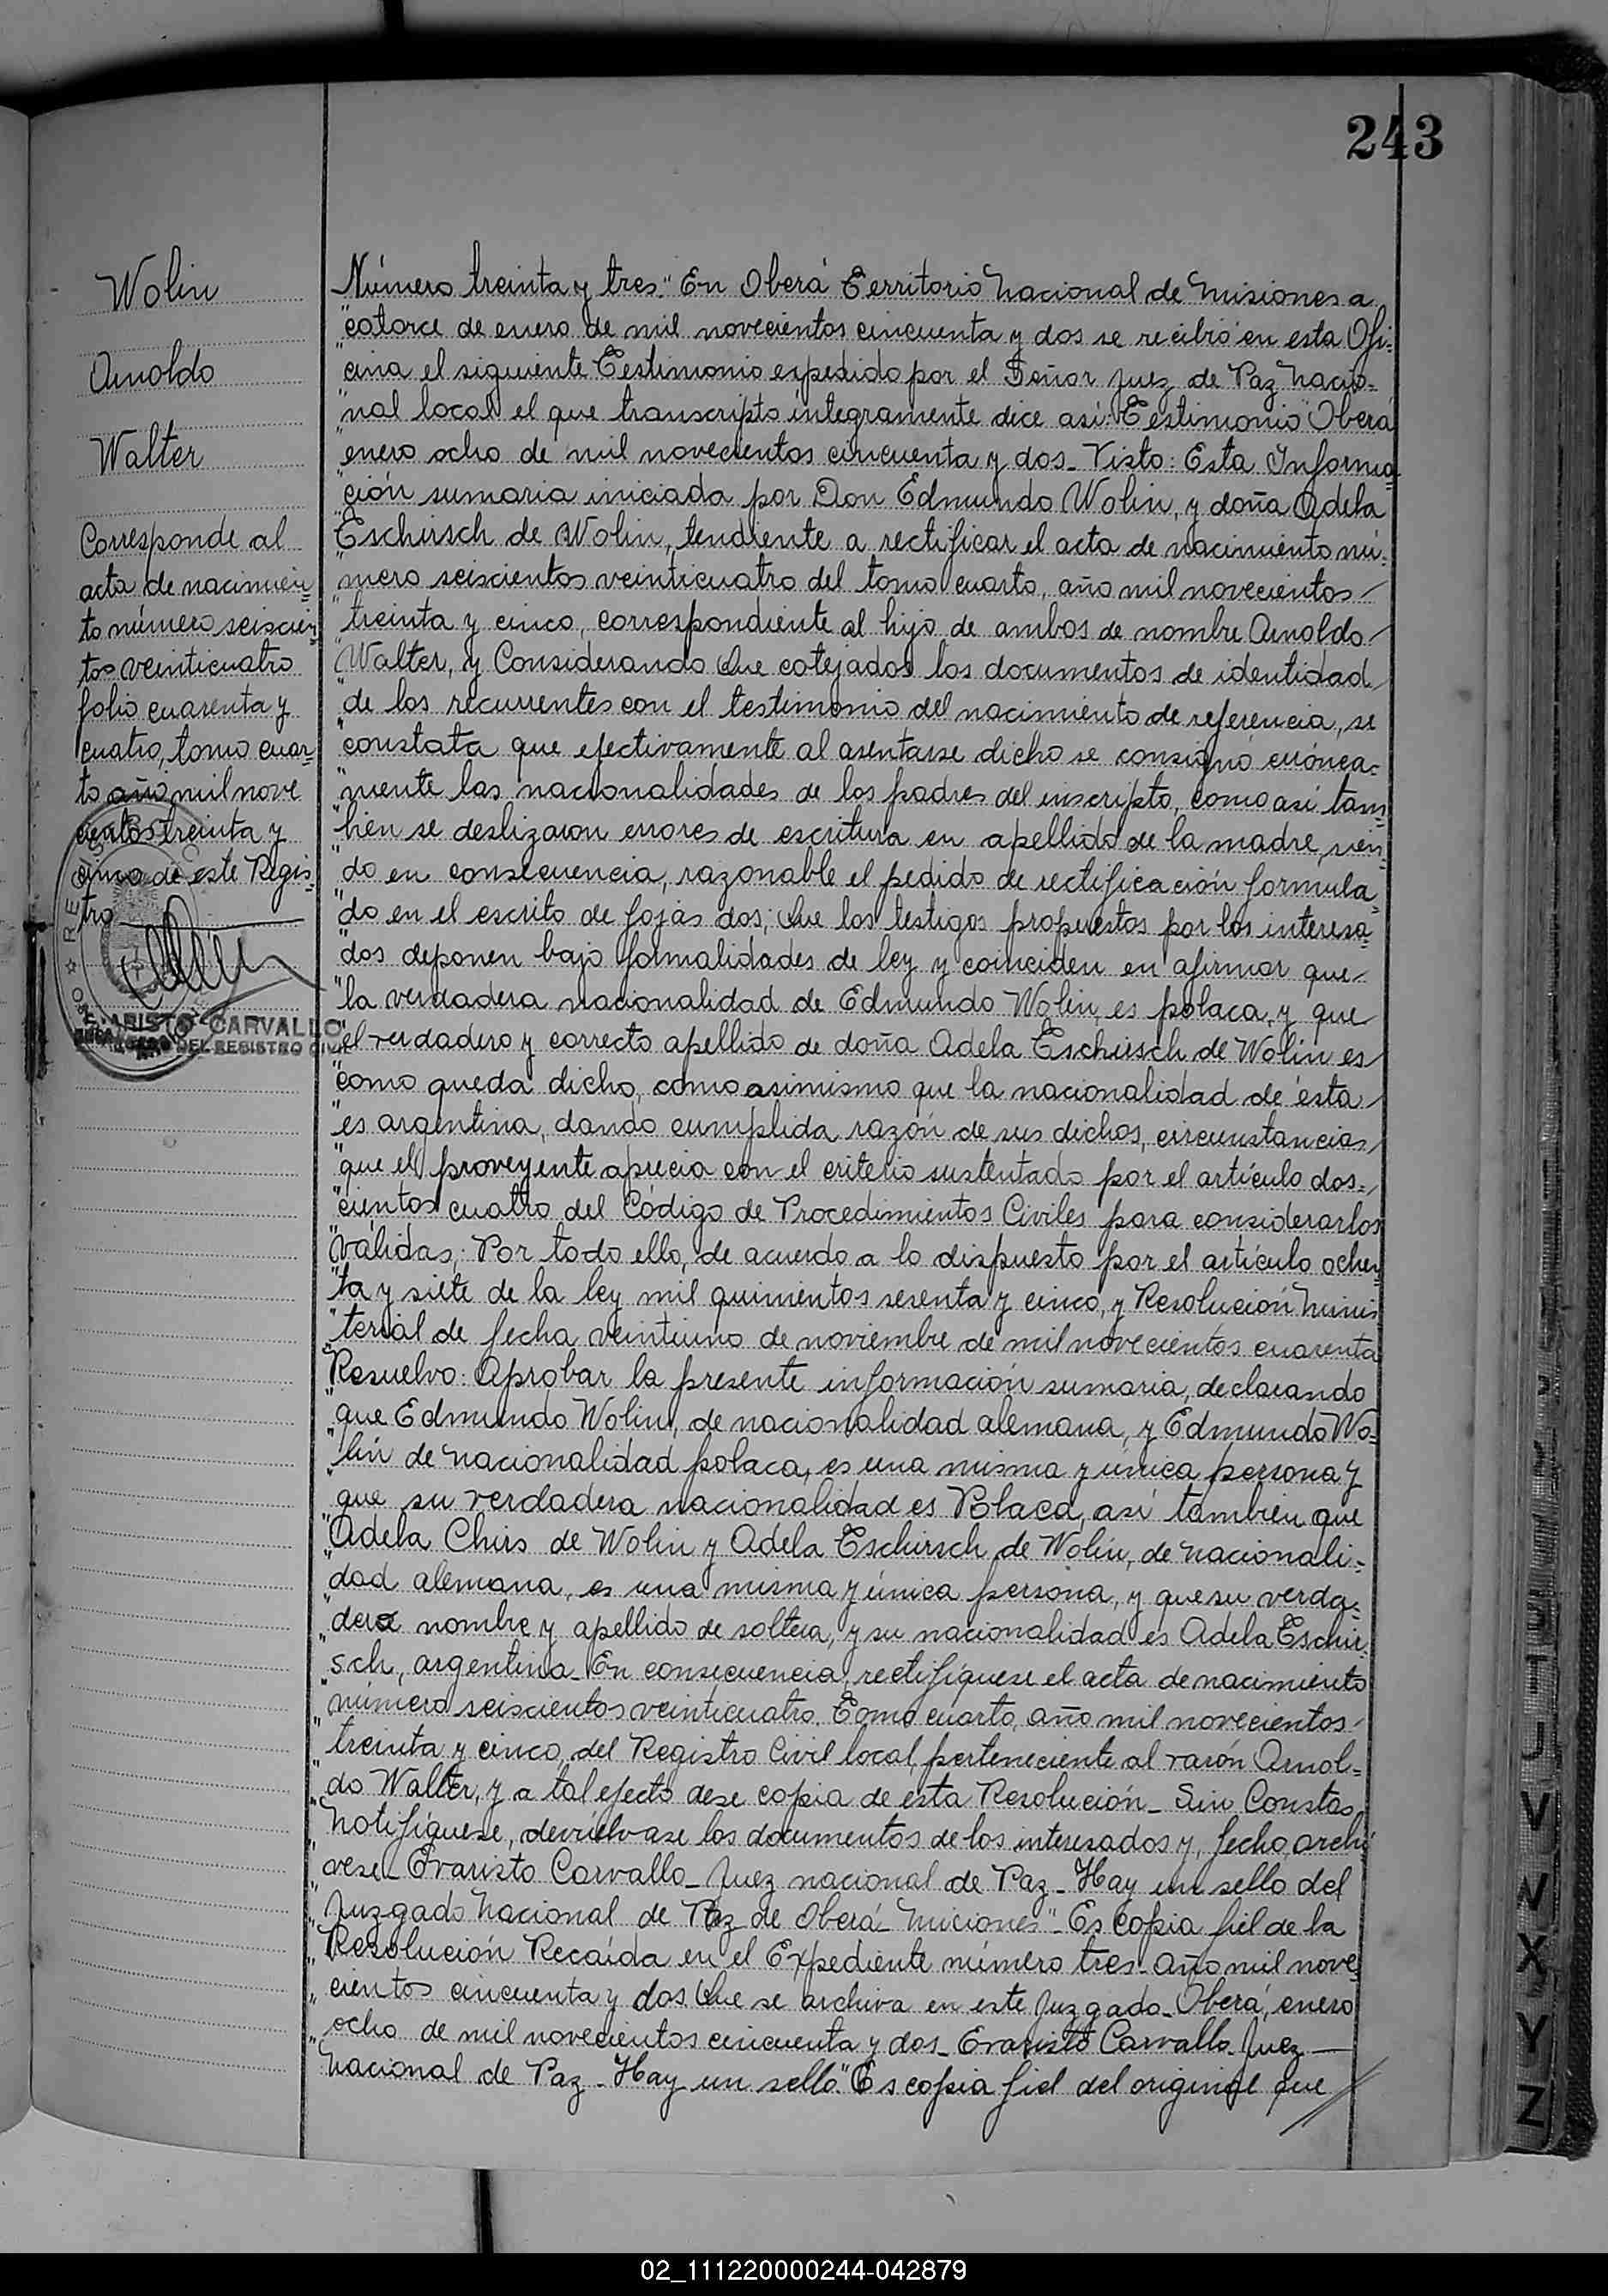 243
Wolin
Arnoldo
Walter
Corresponde al
acta de nacimien=
to número seiscien=
tos veinticuatro
folio cuarenta y
cuatro, tomo cuar=
to año mil nove
cientos treinta y
cinco de este Regis=
tro
EVARISTO CARVALLO
ENCARGADO DEL REGISTRO CIVIL
Número treinta y tres." En Oberá Territorio Nacional de Misiones a
"catorce de enero de mil novecientos cincuenta y dos se recibió en esta Ofi=
"cina el siguiente Testimonio expedido por el Señor Juez de Paz Nacio=
"nal local el que transcripto íntegramente dice así: Testimonio "Oberá
"enero ocho de mil novecientos cincuenta y dos_ Visto: Esta Informa=
"ción sumaria iniciada por Don Edmundo Wolin, y doña Adela
"Eschirsch de Wolin, tendiente a rectificar el acta de nacimiento nú=
"mero seiscientos veinticuatro del tomo cuarto, año mil novecientos
"treinta y cinco, correspondiente al hijo de ambos de nombre Arnoldo
"Walter, y Considerando Que cotejados los documentos de identidad
"de los recurrentes con el testimonio del nacimiento de referencia, se
"constata que efectivamente al asentarse dicho se consignó errónea=
"mente las nacionalidades de los padres del inscripto, como así tam=
"bién se deslizaron errores de escritura en apellido de la madre, sien=
"do en consecuencia, razonable el pedido de rectificación formula=
"do en el escrito de fojas dos; Que los testigos propuestos por los interesa=
"dos deponen bajo formalidades de ley y coinciden en afirmar que
"la verdadera nacionalidad de Edmundo Wolin, es polaca, y que
"el verdadero y correcto apellido de doña Adela Eschirsch de Wolin es
"como queda dicho, como asimismo que la nacionalidad de ésta
"es argentina, dando cumplida razón de sus dichos, circunstancias
"que el proveyente aprecia con el criterio sustentado por el artículo dos=
"cientos cuatro del Código de Procedimientos Civiles para considerarlos
"válidas; Por todo ello, de acuerdo a lo dispuesto por el artículo ochen=
"ta y siete de la ley mil quinientos sesenta y cinco, y Resolución Minis
"terial de fecha veintiuno de noviembre de mil novecientos cuarenta
"Resuelvo: Aprobar la presente información sumaria, declarando
"que Edmundo Wolin, de nacionalidad alemana, y Edmundo Wo=
"lin de nacionalidad polaca, es una misma y única persona y
"que su verdadera nacionalidad es Polaca, así también que
"Adela Chirs de Wolin y Adela Eschirsch de Wolin, de nacionali=
"dad alemana, es una misma y única persona, y que su verda=
"dero nombre y apellido de soltera, y su nacionalidad es Adela Eschir
"sch, argentina_ En consecuencia, rectifíquese el acta de nacimiento
"número seiscientos veinticuatro. Tomo cuarto, año mil novecientos
"treinta y cinco, del Registro Civil local, perteneciente al varón Arnol=
"do Walter, y a tal efecto dese copia de esta Resolución_ Sin Constas,
"Notifíquese, devuélvase los documentos de los interesados y, fecho, archí
"vese_ Evaristo Carvallo_ Juez nacional de Paz_ Hay un sello del
"Juzgado Nacional de Paz de Oberá_ Miciones"_ Es copia fiel de la
"Resolución Recaída en el Expediente número tres_ Año mil nove
"cientos cincuenta y dos Que se archiva en este Juzgado_ Oberá, enero
"ocho de mil novecientos cincuenta y dos_ Evaristo Carvallo_ Juez
"Nacional de Paz_ Hay un sello." Es copia fiel del original que
B
T
J
V
X
Y
Z
02_111220000244-042879